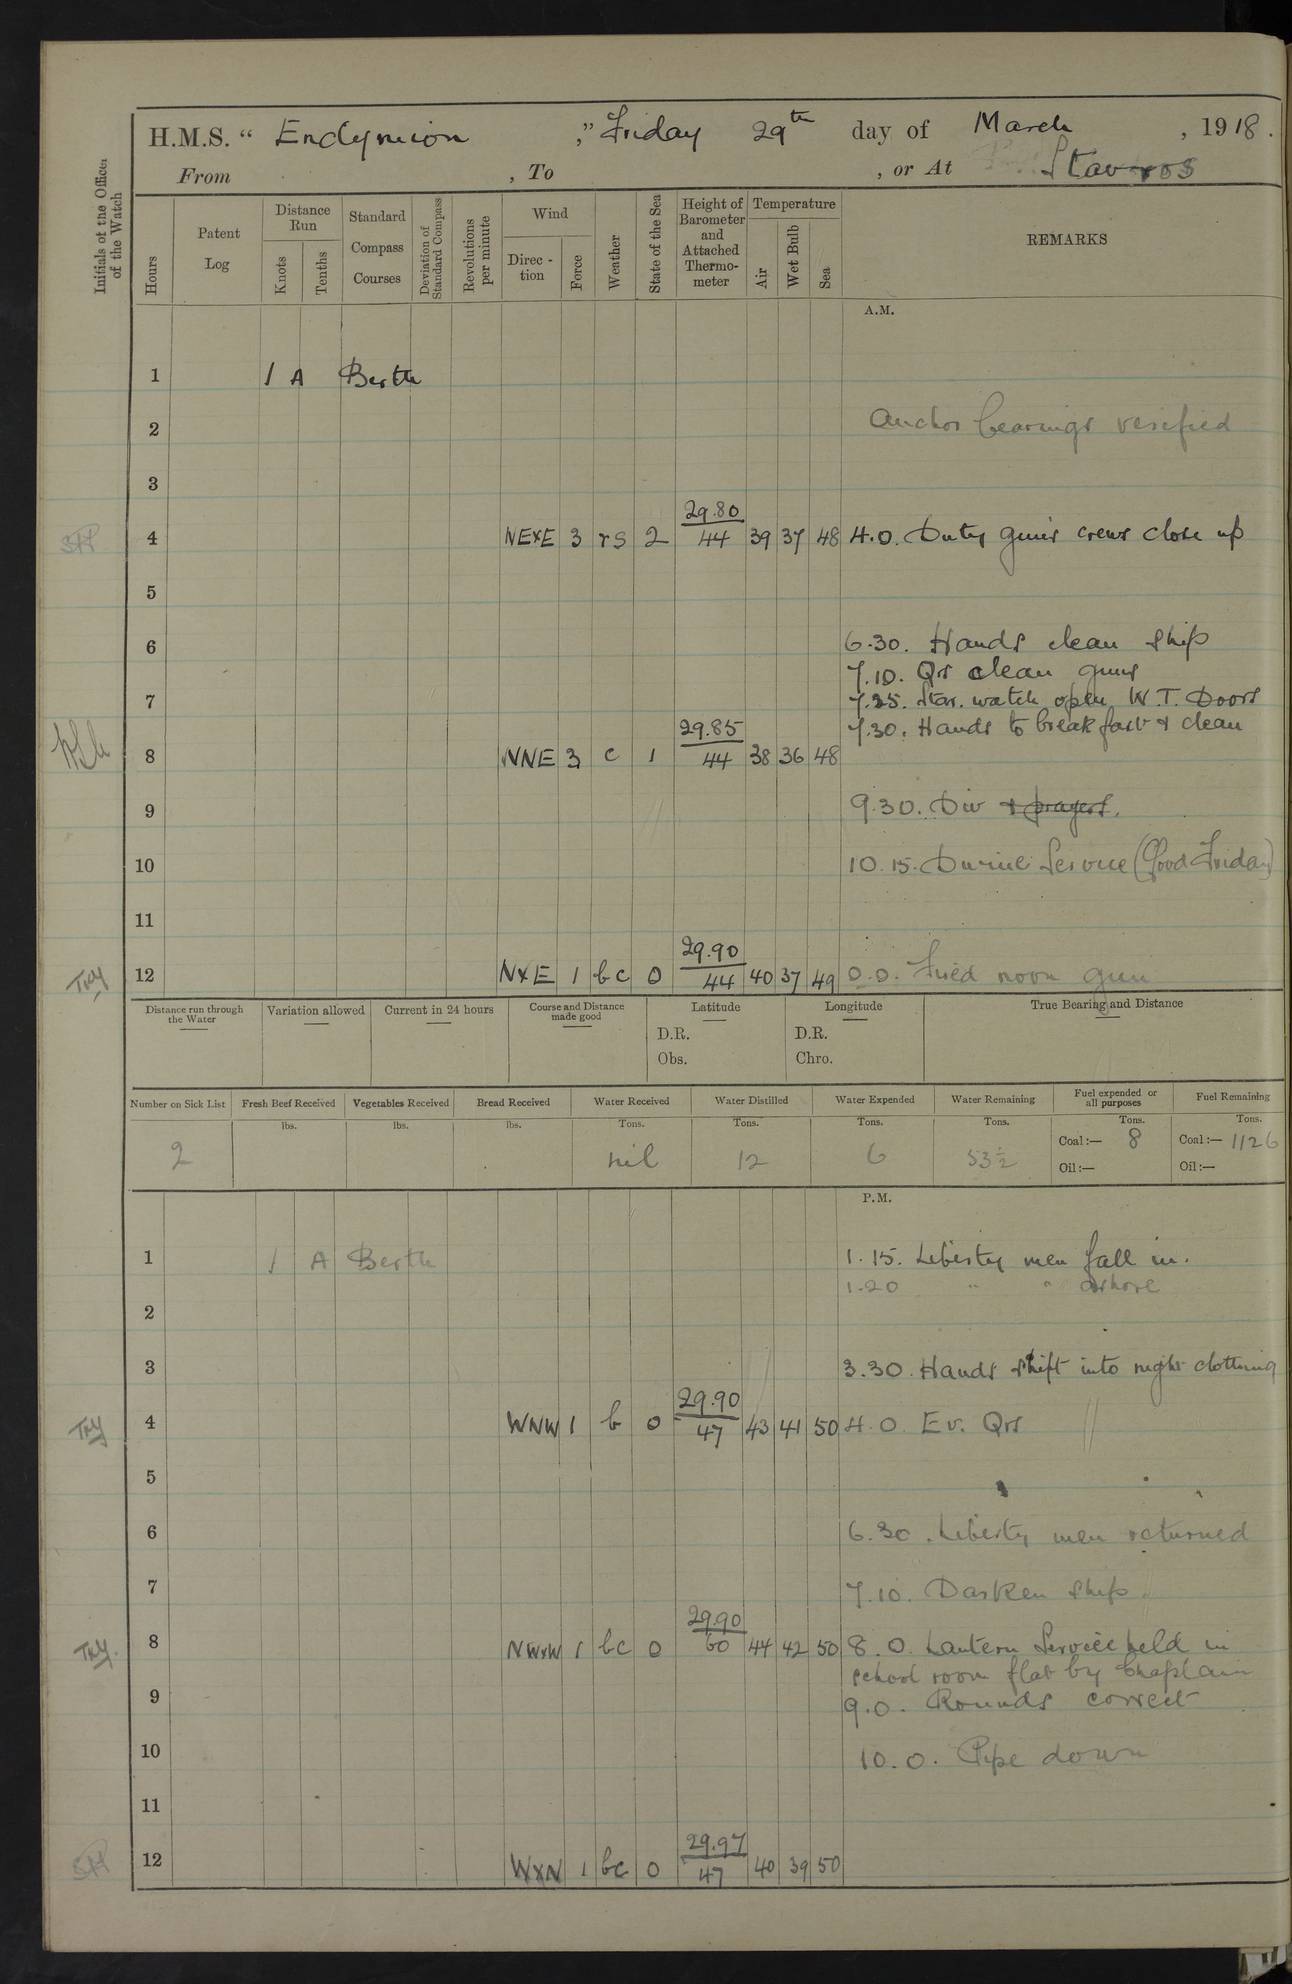 H.M.S. "Endymion," Friday 29th day of March, 1918.
From , To , or At Stavros
Initials of the Officer of the Watch
Hours
Patent Log
Distance Run
Knots
Tenths
Standard Compass Courses
Deviation of Standard Compass
Revolutions per minute
Wind
Direction
Force
Weather
State of the Sea
Height of Barometer and Attached Thermometer
Temperature
Air
Wet Bulb
Sea
REMARKS
A.M.
1 1 A Berth
2 Anchor bearings verified
3
4 NExE 3 rs 2 29.80 44 39 37 48 4.0. Duty gun's crews close up
5
6 6.30. Hands clean ship
7.10. Qrs clean guns
7 7.25. Star. watch open W.T. Doors
7.30. Hands to breakfast & clean
8 NNE 3 c 1 29.85 44 38 36 48
9 9.30. Div & prayers.
10 10.15. Divine Service (Good Friday)
11
12 NxE 1 bc 0 29.90 44 40 37 49 0.0. Fired noon gun
Distance run through the Water
Variation allowed
Current in 24 hours
Course and Distance made good
Latitude
D.R.
Obs.
Longitude
D.R.
Chro.
True Bearing and Distance
Number on Sick List
2
Fresh Beef Received
lbs.
Vegetables Received
lbs.
Bread Received
lbs.
Water Received
Tons.
nil
Water Distilled
Tons.
12
Water Expended
Tons.
6
Water Remaining
Tons.
53½
Fuel expended or all purposes
Tons.
Coal:— 8
Oil:—
Fuel Remaining
Tons.
Coal:— 1126
Oil:—
P.M.
1 1 A Berth 1.15. Liberty men fall in.
1.20 " " ashore
2
3 3.30. Hands shift into night clothing
4 WNW 1 b 0 29.90 47 43 41 50 4.0 Ev. Qrs
5
6 6.30. Liberty men returned
7 7.10. Darken ship
8 NWxW 1 bc 0 29.90 60 44 42 50 8.0. Lantern Service held in
school room flat by Chaplain
9 9.0. Rounds correct
10 10.0. Pipe down
11
12 WxN 1 bc 0 29.97 47 40 39 50